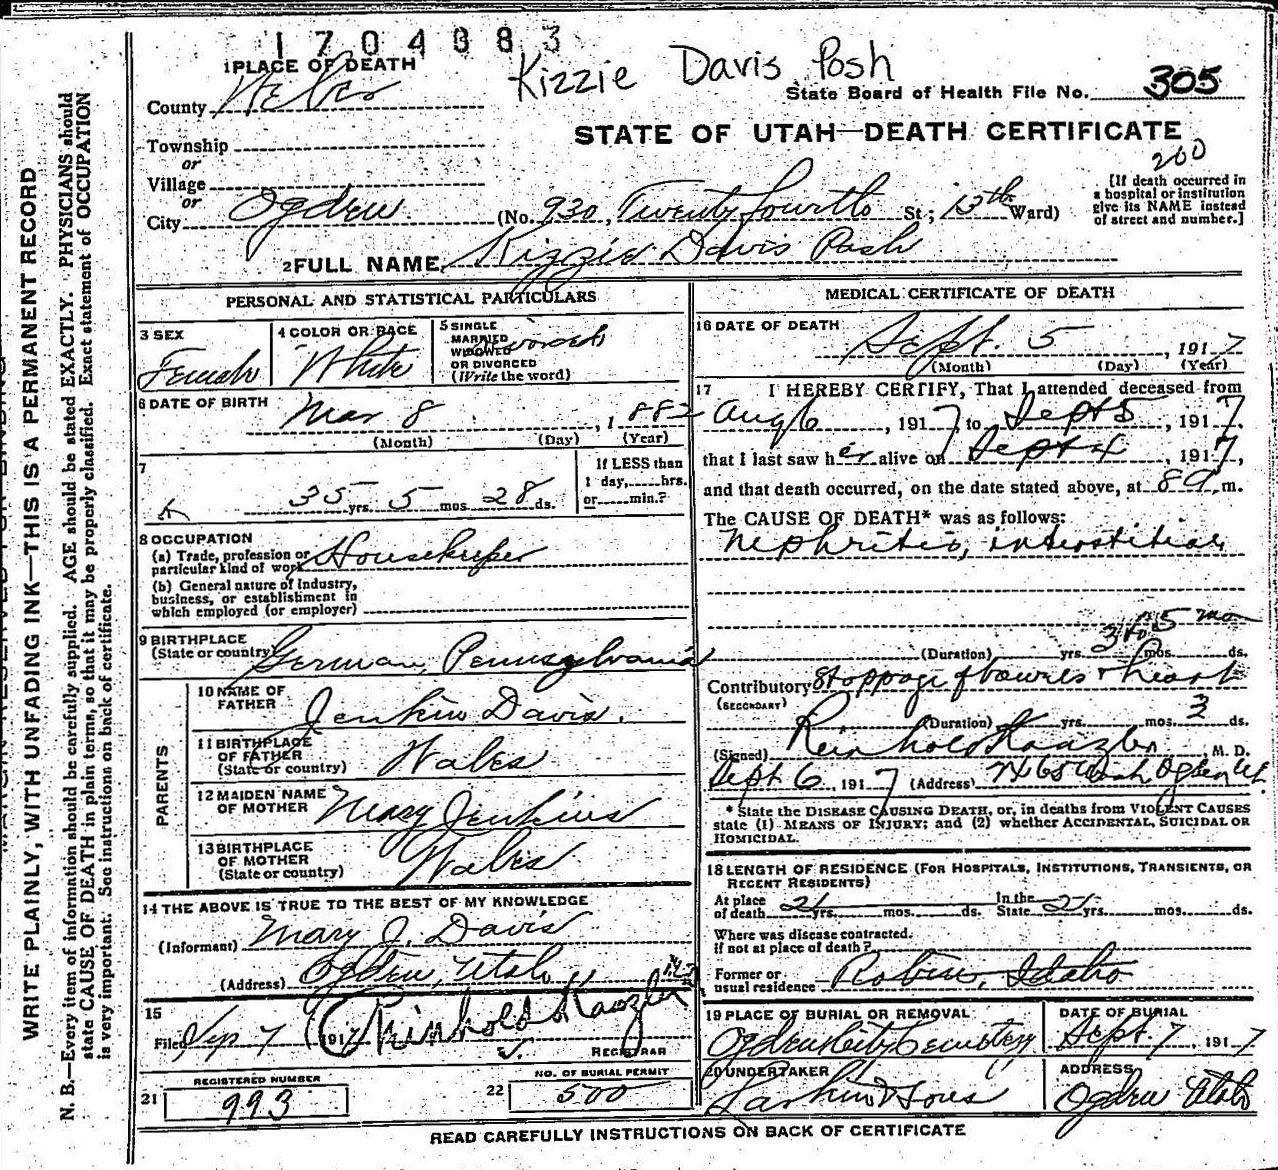 1704383
Kizzie Davis Posh
1 PLACE OF DEATH
County Weber
State Board of Health File No. 305
Township
or
STATE OF UTAH—DEATH CERTIFICATE
200
Village
or
City Ogden (No. 930, Twenty fourth St.; 15th Ward)
[If death occurred in a hospital or institution give its NAME instead of street and number.]
2 FULL NAME Kizzie Davis Posh
PERSONAL AND STATISTICAL PARTICULARS
3 SEX Female
4 COLOR OR RACE White
5 SINGLE MARRIED WIDOWED OR DIVORCED (Write the word) Divorced
6 DATE OF BIRTH Mar 8, 1882
(Month) (Day) (Year)
7 35 yrs. 5 mos. 28 ds.
If LESS than 1 day,......hrs. or......min.?
8 OCCUPATION
(a) Trade, profession or particular kind of work Housekeeper
(b) General nature of Industry, business, or establishment in which employed (or employer)
9 BIRTHPLACE (State or country) German, Pennsylvania
PARENTS
10 NAME OF FATHER Jenkin Davis.
11 BIRTHPLACE OF FATHER (State or country) Wales
12 MAIDEN NAME OF MOTHER Mary Jenkins
13 BIRTHPLACE OF MOTHER (State or country) Wales
14 THE ABOVE IS TRUE TO THE BEST OF MY KNOWLEDGE
(Informant) Mary J. Davis
(Address) Ogden, Utah
15
Filed Sep 7 1917 Reinhold Kanzler
REGISTRAR
21 REGISTERED NUMBER 993
22 NO. OF BURIAL PERMIT 500
MEDICAL CERTIFICATE OF DEATH
16 DATE OF DEATH
Sept. 5, 1917
(Month) (Day) (Year)
17 I HEREBY CERTIFY, That I attended deceased from
Aug 6, 1917 to Sept 5, 1917.
that I last saw her alive on Sept 4, 1917,
and that death occurred, on the date stated above, at 8 a m.
The CAUSE OF DEATH* was as follows:
Nephritis, interstitial
(Duration) yrs. 3 to 5 mo mos. ds.
Contributory Stoppage of bowels & heart
(SECONDARY)
(Duration) yrs. mos. 3 ds.
(Signed) Reinhold Kanzler, M. D.
Sept 6, 1917 (Address) Wash Ogden Ut.
* State the DISEASE CAUSING DEATH, or, in deaths from VIOLENT CAUSES
state (1) MEANS OF INJURY; and (2) whether ACCIDENTAL, SUICIDAL OR
HOMICIDAL.
18 LENGTH OF RESIDENCE (FOR HOSPITALS, INSTITUTIONS, TRANSIENTS, OR
RECENT RESIDENTS)
At place of death 21 yrs. mos. ds. In the State 21 yrs. mos. ds.
Where was disease contracted. if not at place of death?
Former or usual residence Robin, Idaho
19 PLACE OF BURIAL OR REMOVAL
Ogden City Cemetery
DATE OF BURIAL
Sept. 7, 1917
20 UNDERTAKER
Larkin & Sons
ADDRESS
Ogden Utah
READ CAREFULLY INSTRUCTIONS ON BACK OF CERTIFICATE
WRITE PLAINLY, WITH UNFADING INK—THIS IS A PERMANENT RECORD
N. B.—Every item of information should be carefully supplied. AGE should be stated EXACTLY. PHYSICIANS should
state CAUSE OF DEATH in plain terms, so that it may be properly classified. Exact statement of OCCUPATION
is very important. See instructions on back of certificate.